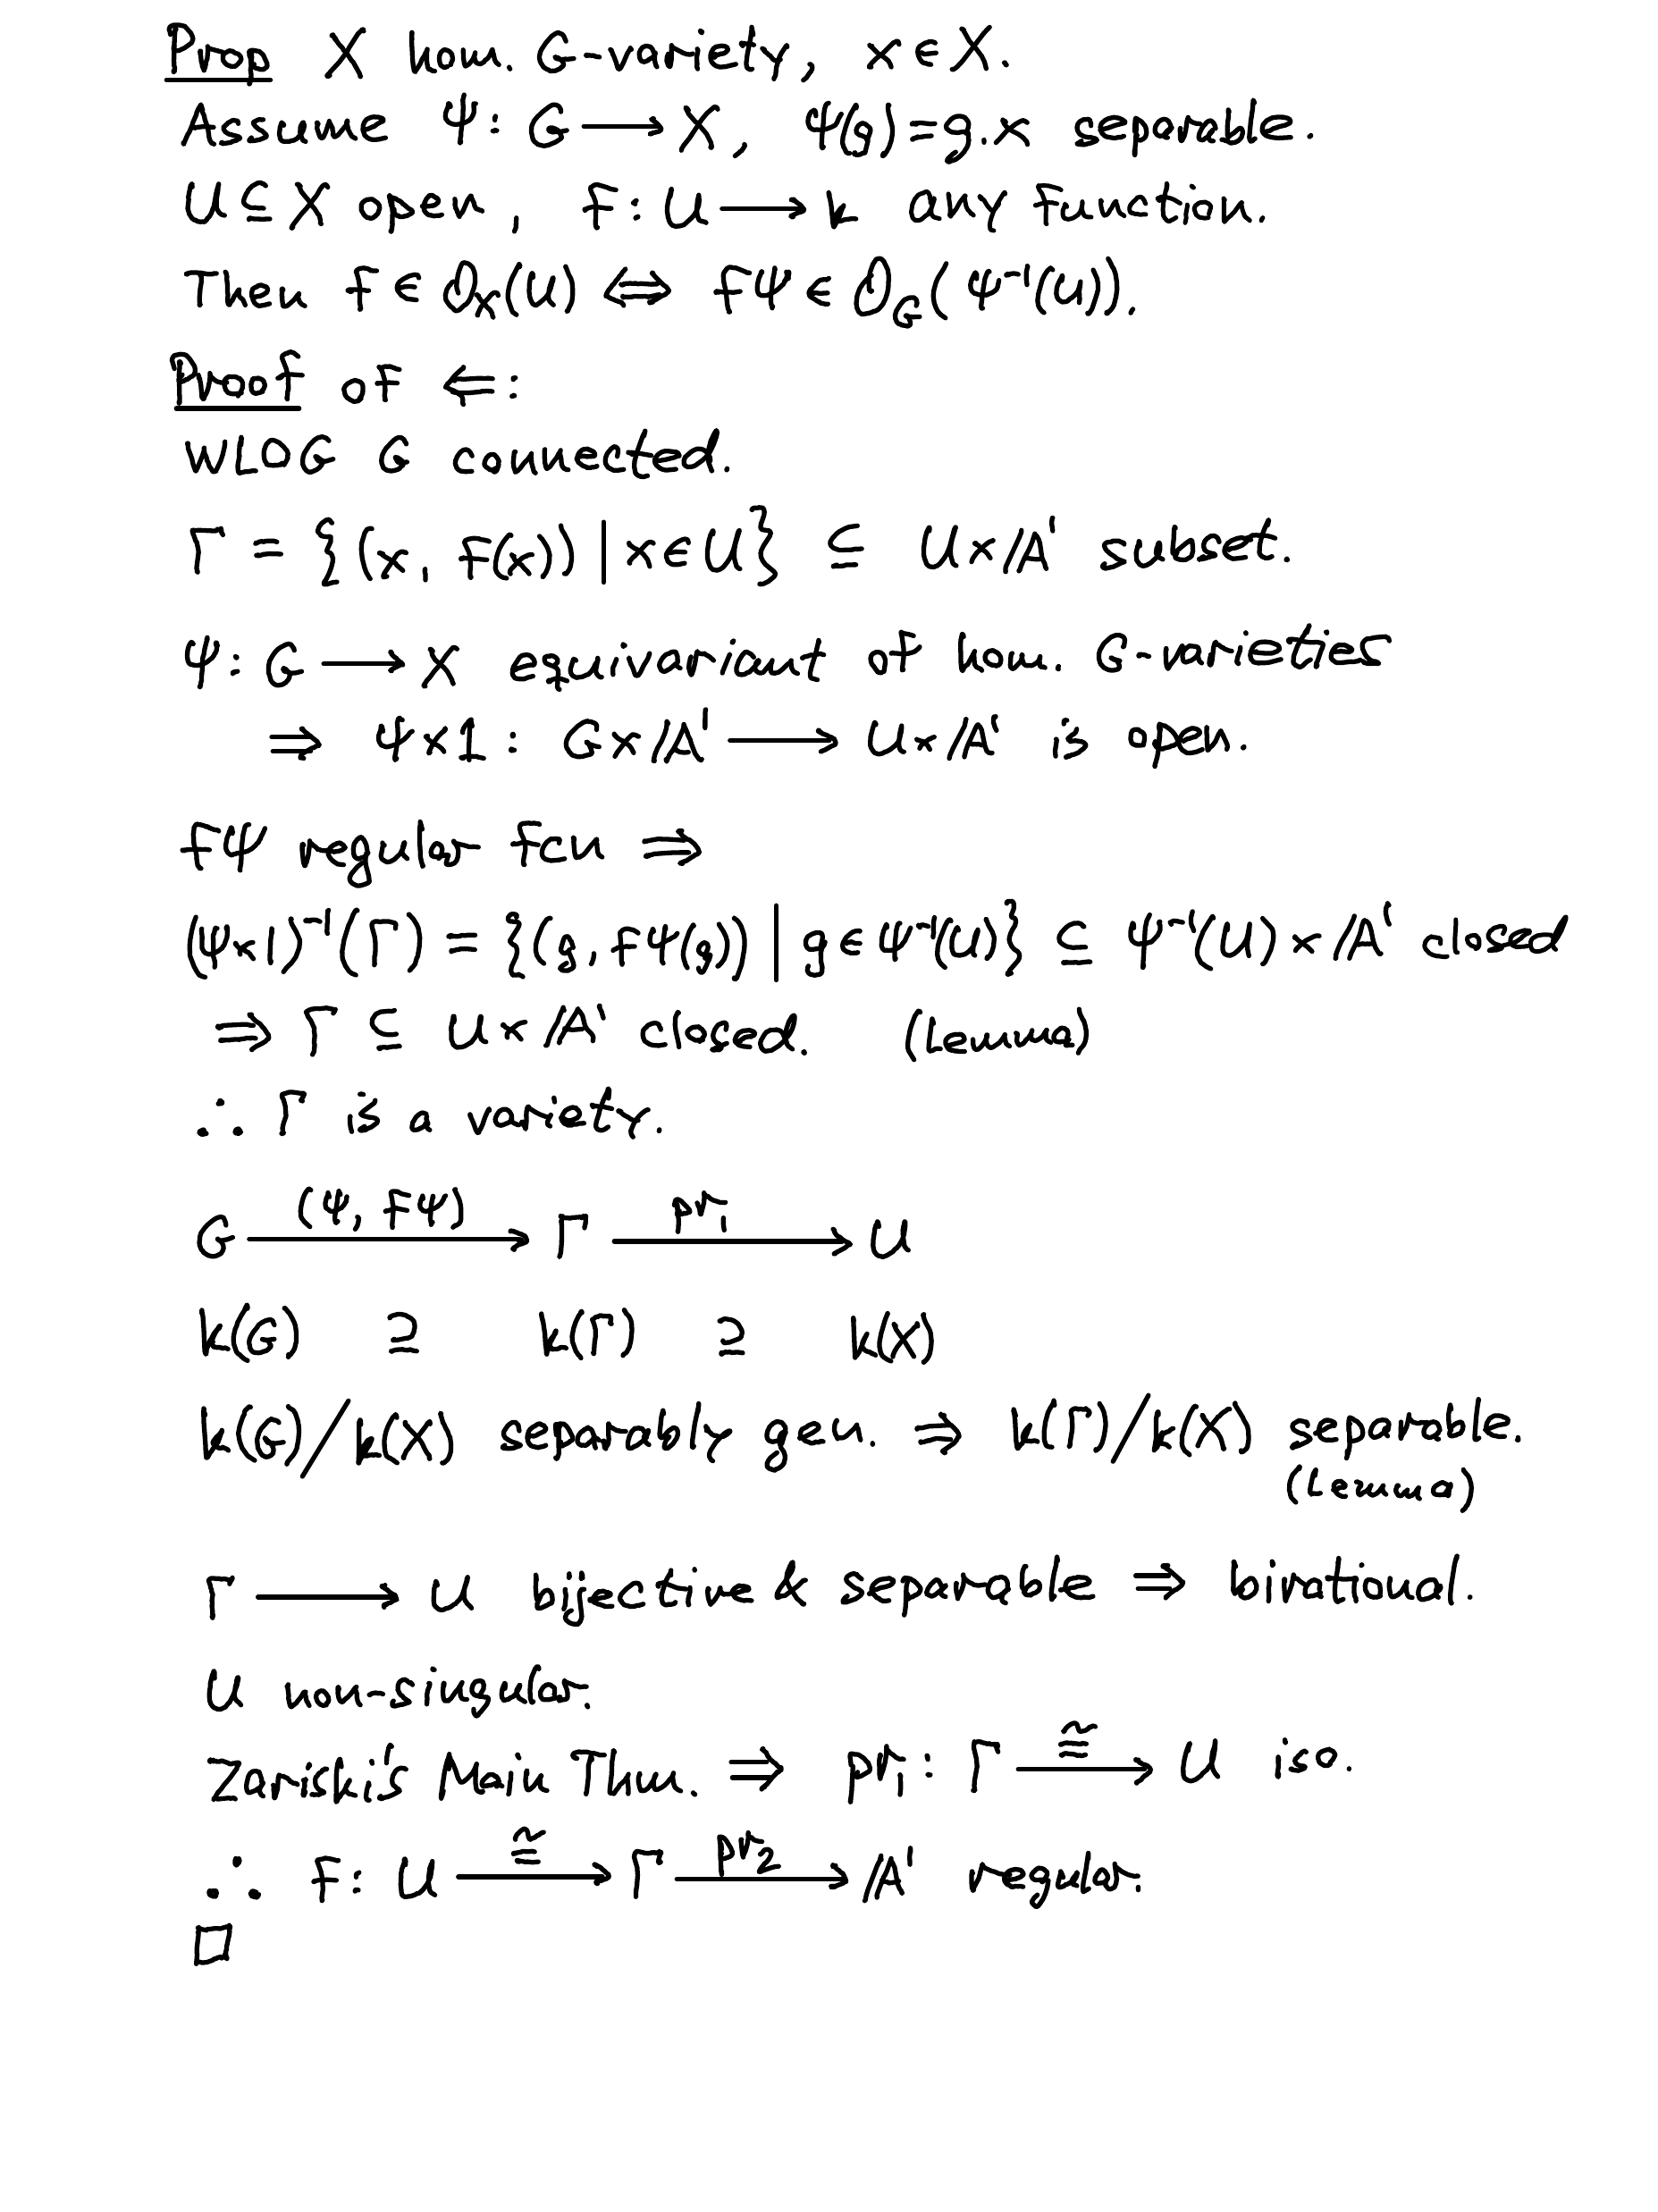 Prop X hom. G-variety, x ∈ X.
Assume Ψ: G ⟶ X, Ψ(g) = g.x separable.
U ⊆ X open, f: U ⟶ k any function.
Then f ∈ O_X(U) ⇔ fΨ ∈ O_G(Ψ⁻¹(U)).
Proof of ⇐:
WLOG G connected.
Γ = {(x, f(x)) | x ∈ U} ⊆ U × A¹ subset.
Ψ: G ⟶ X equivariant of hom. G-varieties
⇒ Ψ×1 : G × A¹ ⟶ U × A¹ is open.
fΨ regular fcn ⇒
(Ψ×1)⁻¹(Γ) = {(g, fΨ(g)) | g ∈ Ψ⁻¹(U)} ⊆ Ψ⁻¹(U) × A¹ closed
⇒ Γ ⊆ U × A¹ closed. (Lemma)
∴ Γ is a variety.
G —(Ψ, fΨ)⟶ Γ —pr₁⟶ U
k(G) ⊇ k(Γ) ⊇ k(X)
k(G)/k(X) separably gen. ⇒ k(Γ)/k(X) separable.
(Lemma)
Γ ⟶ U bijective & separable ⇒ birational.
U non-singular.
Zariski's Main Thm. ⇒ pr₁: Γ —≅⟶ U iso.
∴ f: U —≅⟶ Γ —pr₂⟶ A¹ regular.
□